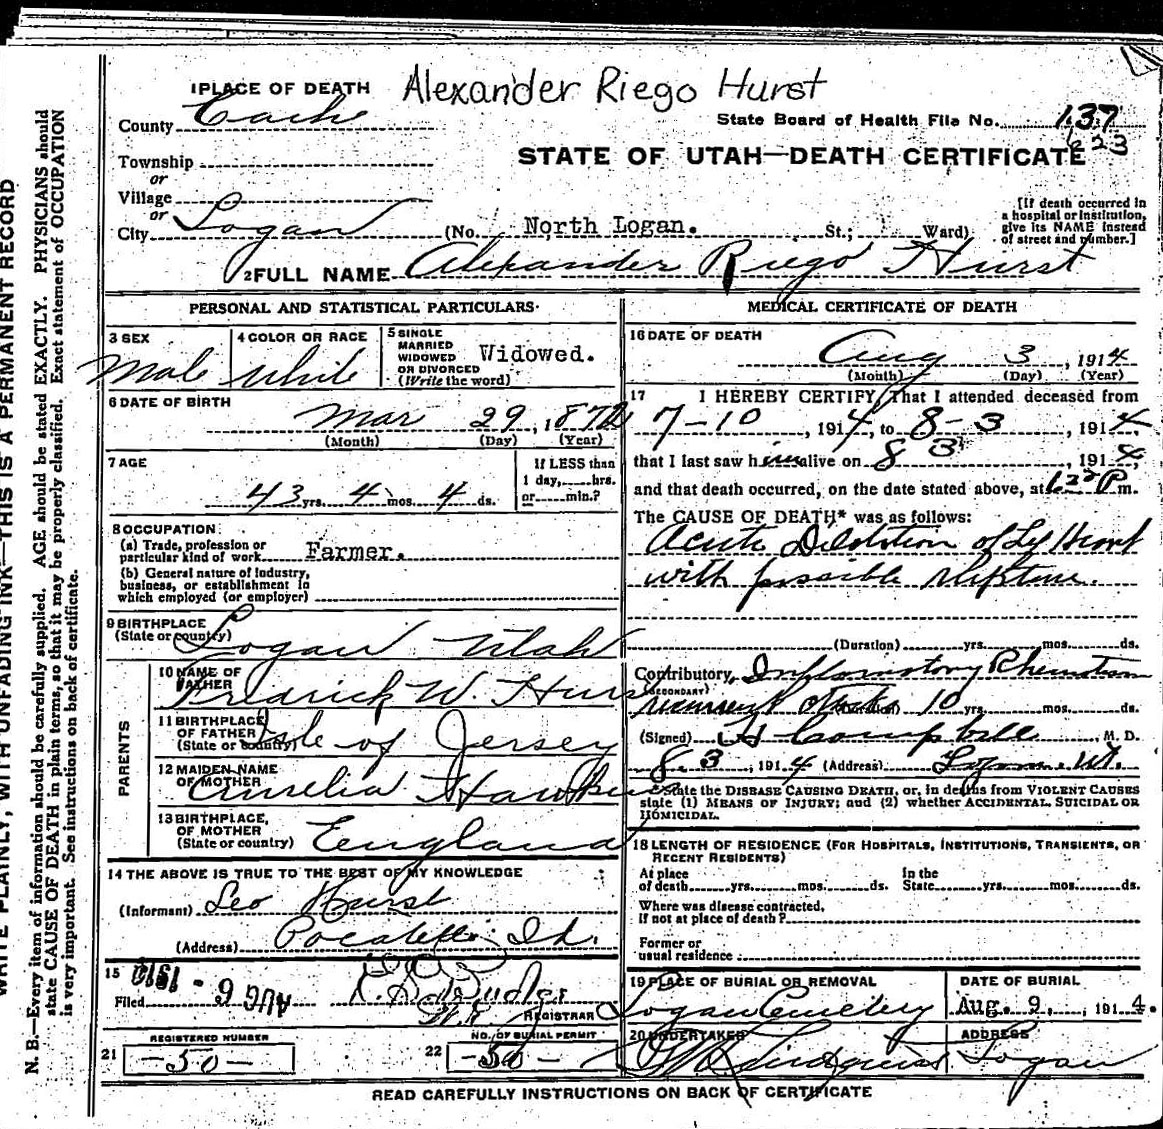 Alexander Riego Hurst
1 PLACE OF DEATH
County Cache
State Board of Health File No. 137
623
STATE OF UTAH—DEATH CERTIFICATE
Township
or
Village
or
City Logan (No. North Logan. St.; Ward)
[If death occurred in a hospital or institution, give its NAME instead of street and number.]
2 FULL NAME Alexander Riego Hurst
PERSONAL AND STATISTICAL PARTICULARS
3 SEX
Male
4 COLOR OR RACE
White
5 SINGLE
MARRIED
WIDOWED
OR DIVORCED
(Write the word)
Widowed.
6 DATE OF BIRTH
Mar 29, 187
(Month) (Day) (Year)
7 AGE
43 yrs. 4 mos. 4 ds.
If LESS than
1 day, hrs.
or min.?
8 OCCUPATION
(a) Trade, profession or
particular kind of work Farmer.
(b) General nature of industry,
business, or establishment in
which employed (or employer)
9 BIRTHPLACE
(State or country) Logan Utah
PARENTS
10 NAME OF
FATHER Fredrick W. Hurst
11 BIRTHPLACE
OF FATHER
(State or country) Isle of Jersey
12 MAIDEN NAME
OF MOTHER Aurelia Hawkins
13 BIRTHPLACE,
OF MOTHER
(State or country) England
14 THE ABOVE IS TRUE TO THE BEST OF MY KNOWLEDGE
(Informant) Leo Hurst
(Address) Pocatello Id.
15
Filed AUG 6 - 1914
REGISTRAR
REGISTERED NUMBER
21 -50-
NO. OF BURIAL PERMIT
22 -50-
MEDICAL CERTIFICATE OF DEATH
16 DATE OF DEATH
Aug 3, 1914
(Month) (Day) (Year)
17 I HEREBY CERTIFY, That I attended deceased from
7-10, 1914, to 8-3, 1914,
that I last saw him alive on 8 3, 1914,
and that death occurred, on the date stated above, at P m.
The CAUSE OF DEATH* was as follows:
Acute Dilatation of Lf Heart
with possible Rupture.
(Duration) yrs. mos. ds.
Contributory Inflamatory Rheumatism
(SECONDARY)
recurrent attacks (Duration) 10 yrs. mos. ds.
(Signed) Campbell M. D.
8-3, 1914 (Address) Logan Ut.
*State the DISEASE CAUSING DEATH, or, in deaths from VIOLENT CAUSES
state (1) MEANS OF INJURY; and (2) whether ACCIDENTAL, SUICIDAL OR
HOMICIDAL.
18 LENGTH OF RESIDENCE (FOR HOSPITALS, INSTITUTIONS, TRANSIENTS, OR
RECENT RESIDENTS)
At place
of death yrs. mos. ds.
In the
State yrs. mos. ds.
Where was disease contracted,
If not at place of death?
Former or
usual residence
19 PLACE OF BURIAL OR REMOVAL
Logan Cemetery
DATE OF BURIAL
Aug. 9, 1914.
20 UNDERTAKER
ADDRESS
Logan
READ CAREFULLY INSTRUCTIONS ON BACK OF CERTIFICATE
WRITE PLAINLY, WITH UNFADING INK—THIS IS A PERMANENT RECORD
N. B.—Every item of information should be carefully supplied. AGE should be stated EXACTLY. PHYSICIANS should
state CAUSE OF DEATH in plain terms, so that it may be properly classified. Exact statement of OCCUPATION
is very important. See instructions on back of certificate.